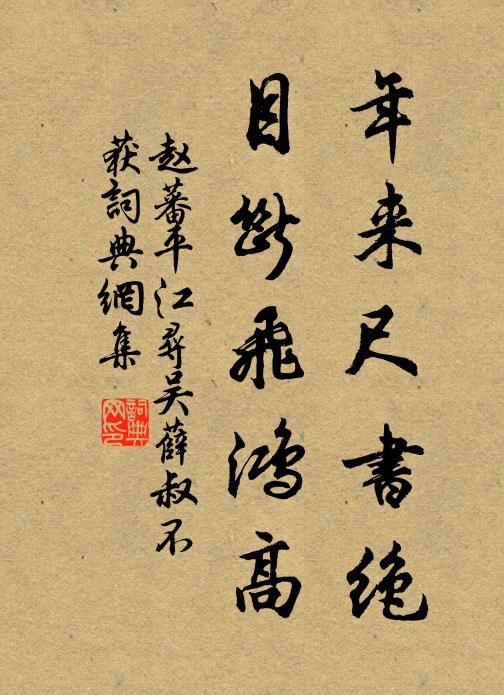 年来尺書绝
目断飛鸿高
赵蕃平江尋吴薛叔不
获詞典網集
詞典网印